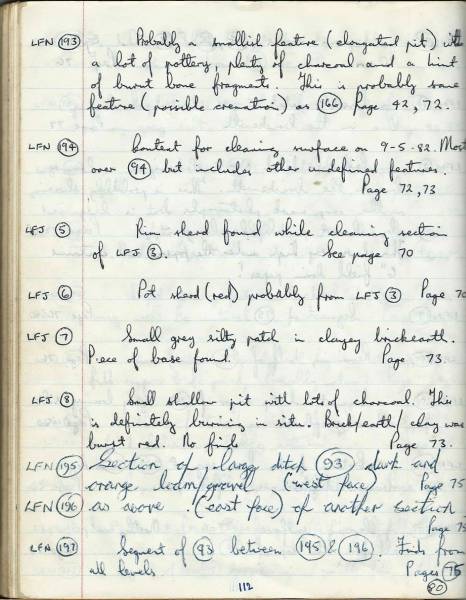 LFN (193) Probably a smallish feature (elongated pit) with
a lot of pottery, plenty of charcoal and a hint
of burnt bone fragments. This is probably same
feature (possible cremation) as (166) Page 42, 72.
LFN (194) Context for cleaning surface on 9-5-82. Most
over (94) but includes other undefined features.
Page 72, 73
LFJ (5) Rim sherd found while cleaning section
of LFJ (3). See page 70
LFJ (6) Pot sherd (red) probably from LFJ (3) Page 70
LFJ (7) Small grey silty patch in clayey brickearth.
Piece of base found. Page 73.
LFJ (8) Small shallow pit with lots of charcoal. This
is definitely burning in situ. Brickearth/clay was
burnt red. No finds Page 73.
LFN (195) Section of large ditch (93) dark and
orange loam/gravel (west face) Page 75
LFN (196) as above (east face) of another section
Page 75
LFN (197) Segment of (93) between (195) & (196). Finds from
all levels. Pages 75
112 80